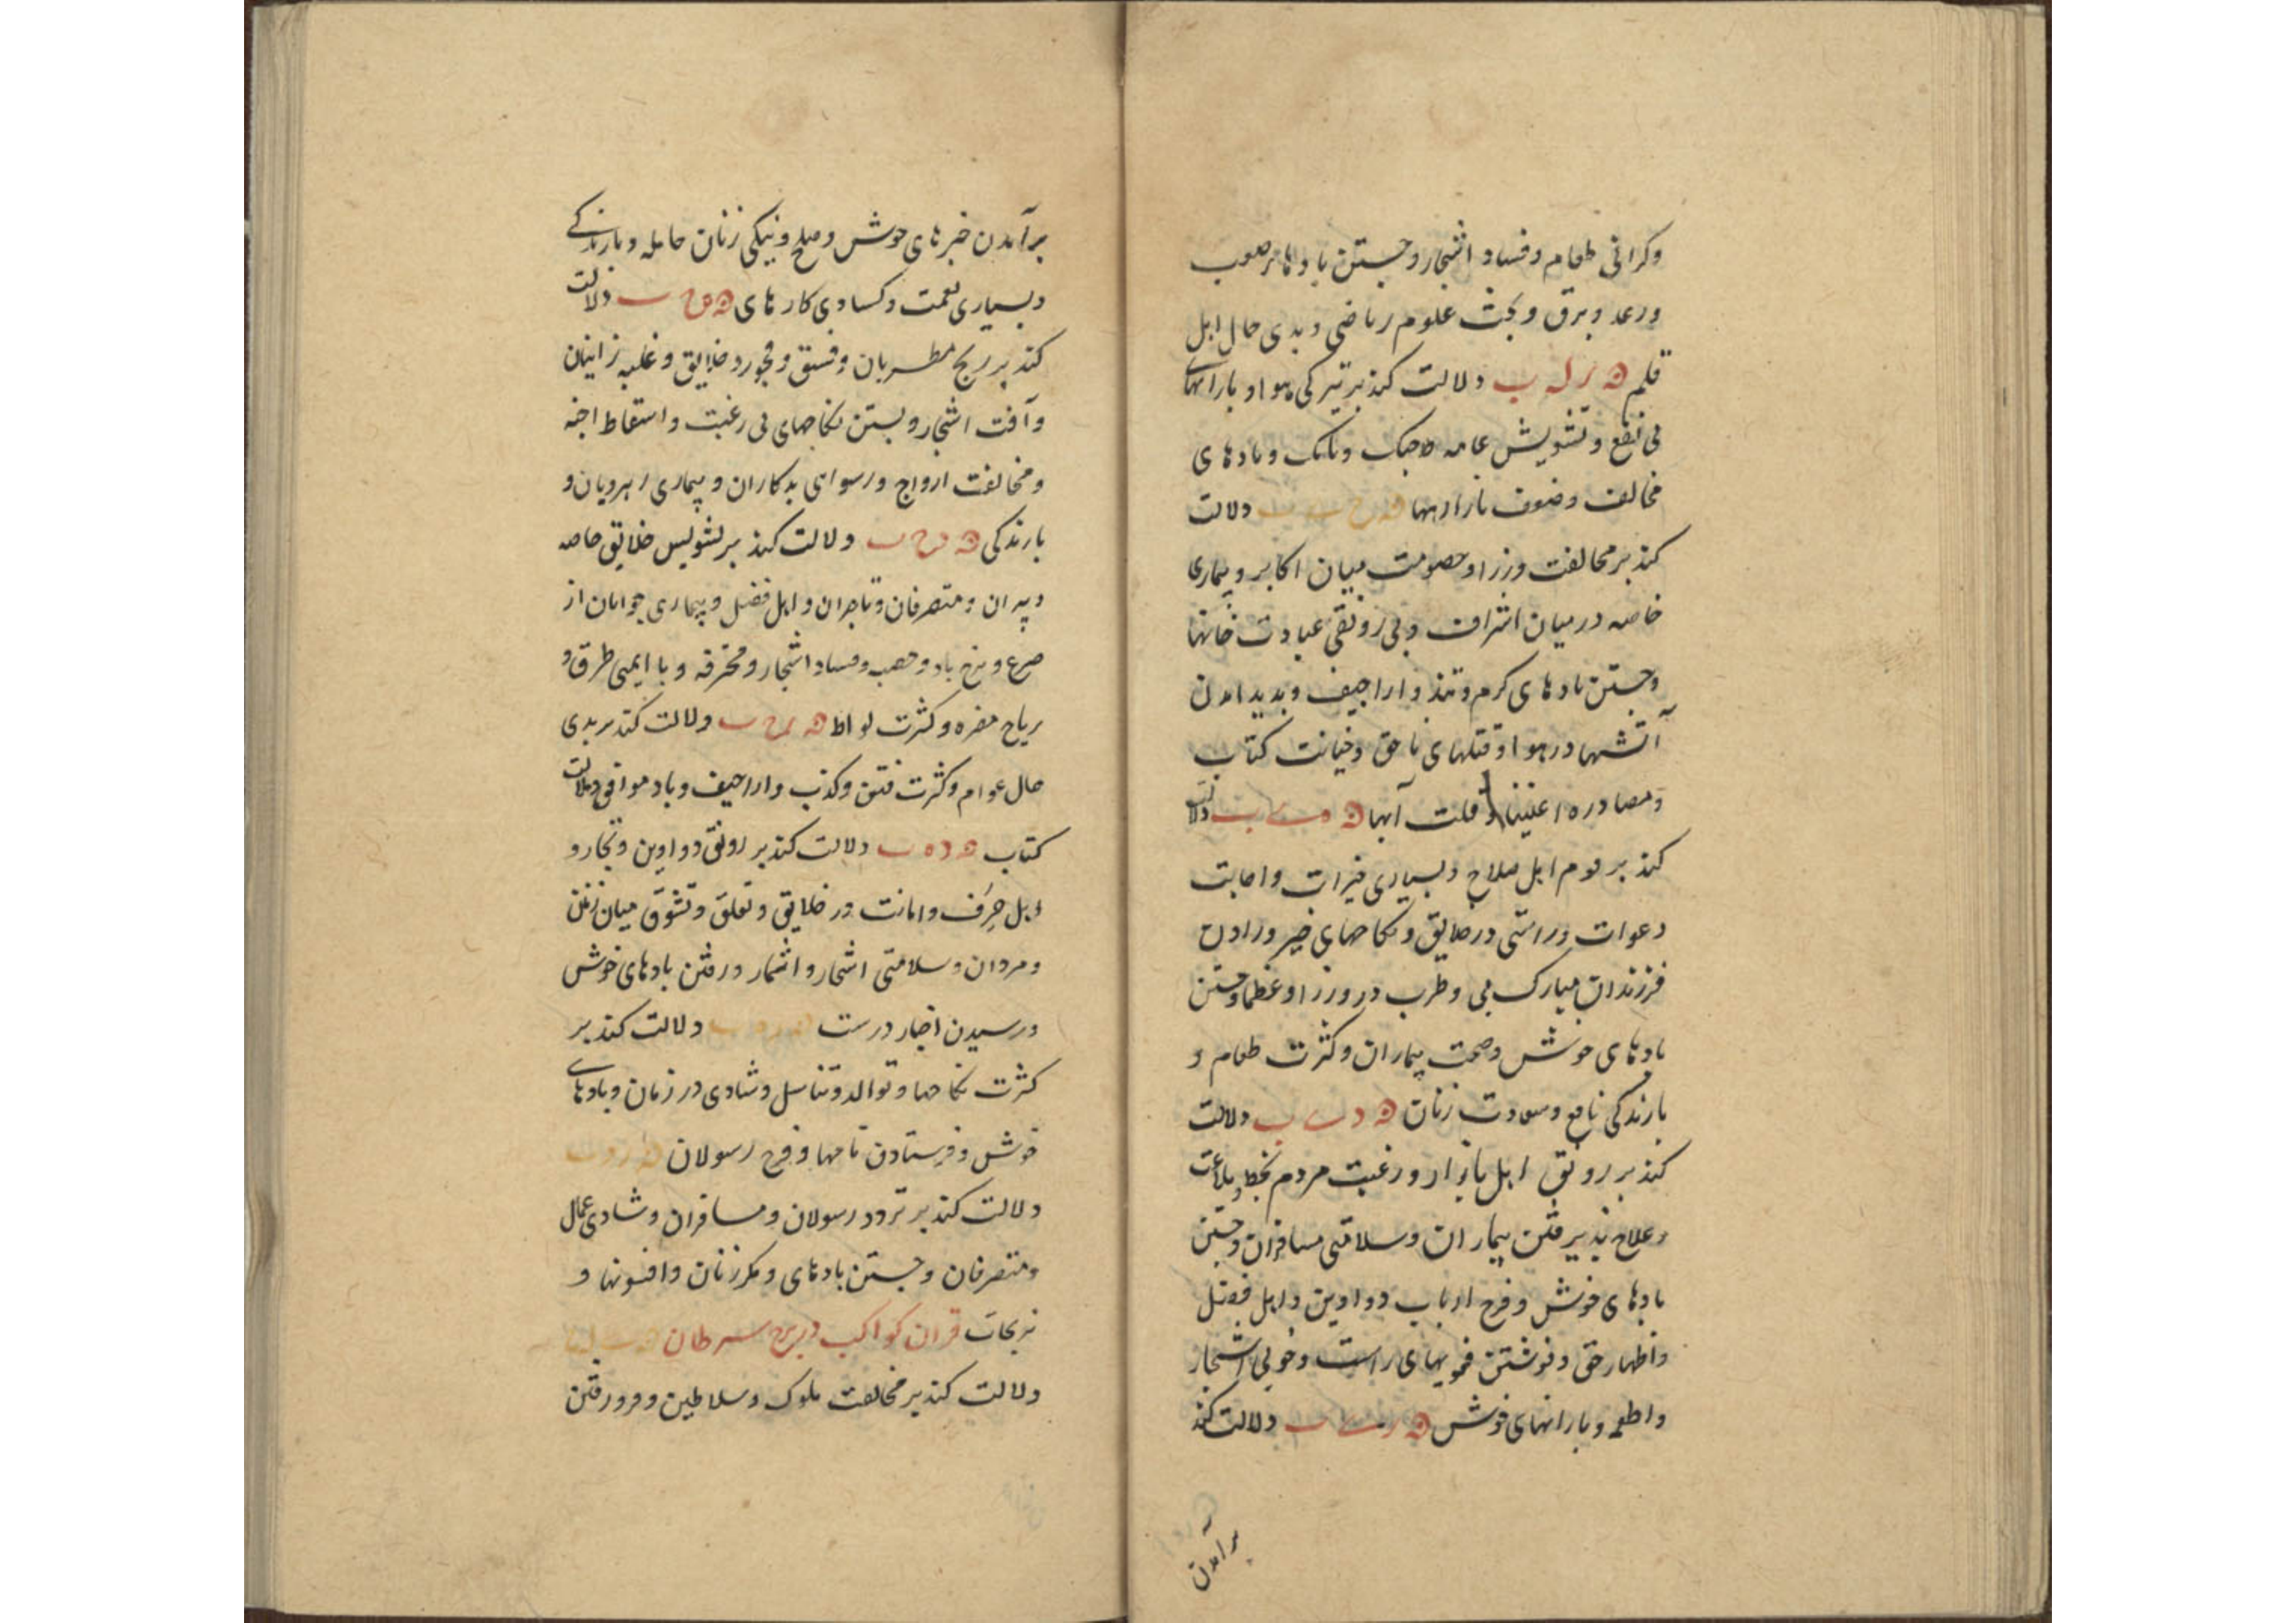 وکرانی طعام و فساد اشجار و جستن بادها نرصعوب
ورعد و برق و بحث علوم ریاضی و بدی حال اهل
قلم ۵ ر له ب دلالت کند بر تیرکی هوا و بارانهای
بی نفع و تشویش عامه و بادهای
مخالف و ضعف بازاریها دلالت
کند بر مخالفت وزرا و خصومت میان اکابر و بیماری
خاصه در میان اشراف و بی رونقی عبادت خانها
و جستن بادهای کرم و تند و اراجیف و بدید امدن
آتشها در هوا و قتلهای ناحق و خیانت کتاب
و مصادره اغنیا و قلت آبها دلالت
کند بر اهل صلاح و بسیاری خیرات و اجابت
دعوات و راستی در خلایق و نکاحهای خیر و زادن
فرزندان مبارک و طرب در وزرا و عظما و جستن
بادهای خوش و صحت بیماران و کثرت طعام و
بارندکی نافع و سعادت زنان دلالت
کند بر رونق اهل بازار و رغبت مردم بخط و بلاغت
و علاج پذیرفتن بیماران و سلامتی مسافران و جستن
بادهای خوش و فرح ارباب دواوین و اهل فضل
و اظهار حق و نوشتن راست و خوبی اشجار
و اطعمه و بارانهای خوش دلالت کند
برامدن
برآمدن خبرهای خوش و صلح و نیکی زنان حامله و بارندکی
و بسیاری نعمت و کسادی کارهای دلالت
کند بر رنج مطربان و فسق و فجور در خلایق و غلبه زانیان
و آفت اشجار و بستن نکاحهای بی رغبت و اسقاط اجنه
و مخالفت ازواج و رسوایی بدکاران و بیماری و
بارندکی دلالت کند بر تشویش خلایق خاصه
دبیران و متصرفان و تاجران و اهل فضل و بیماری جوانان از
صرع و باد و فساد اشجار و محترفه و با ایمنی طرق و
ریاح مضره و کثرت لواط دلالت کند بر بدی
حال عوام و کثرت فتن و کذب و اراجیف و باد موافق دلالت
کتاب دلالت کند بر رونق دواوین و تجار و
اهل حرف و امانت در خلایق و تعلق و تشوق میان زنان
و مردان و سلامتی اشجار و اثمار و رفتن بادهای خوش
و رسیدن اخبار درست دلالت کند بر
کثرت نکاحها و توالد و تناسل و شادی در زمان و بادهای
خوش و فرستادن نامها و فرح رسولان
دلالت کند بر تردد رسولان و مسافران و شادی عمال
و متصرفان و جستن بادهای و مکر زنان و افسونها و
نیرنجات قران کواکب در برج سرطان
دلالت کند بر مخالفت ملوک و سلاطین و فرو رفتن